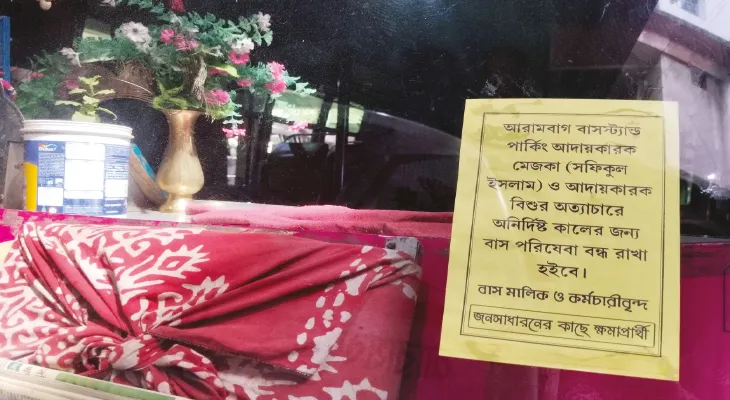 আরামবাগ বাসস্ট্যান্ড
পার্কিং আদায়কারক
মেজকা (সফিকুল
ইসলাম) ও আদায়কারক
বিশুর অত্যাচারে
অনির্দিষ্ট কালের জন্য
বাস পরিযেবা বন্ধ রাখা
হইবে।
বাস মালিক ও কর্মচারীবৃন্দ
জনসাধারনের কাছে ক্ষমাপ্রার্থী